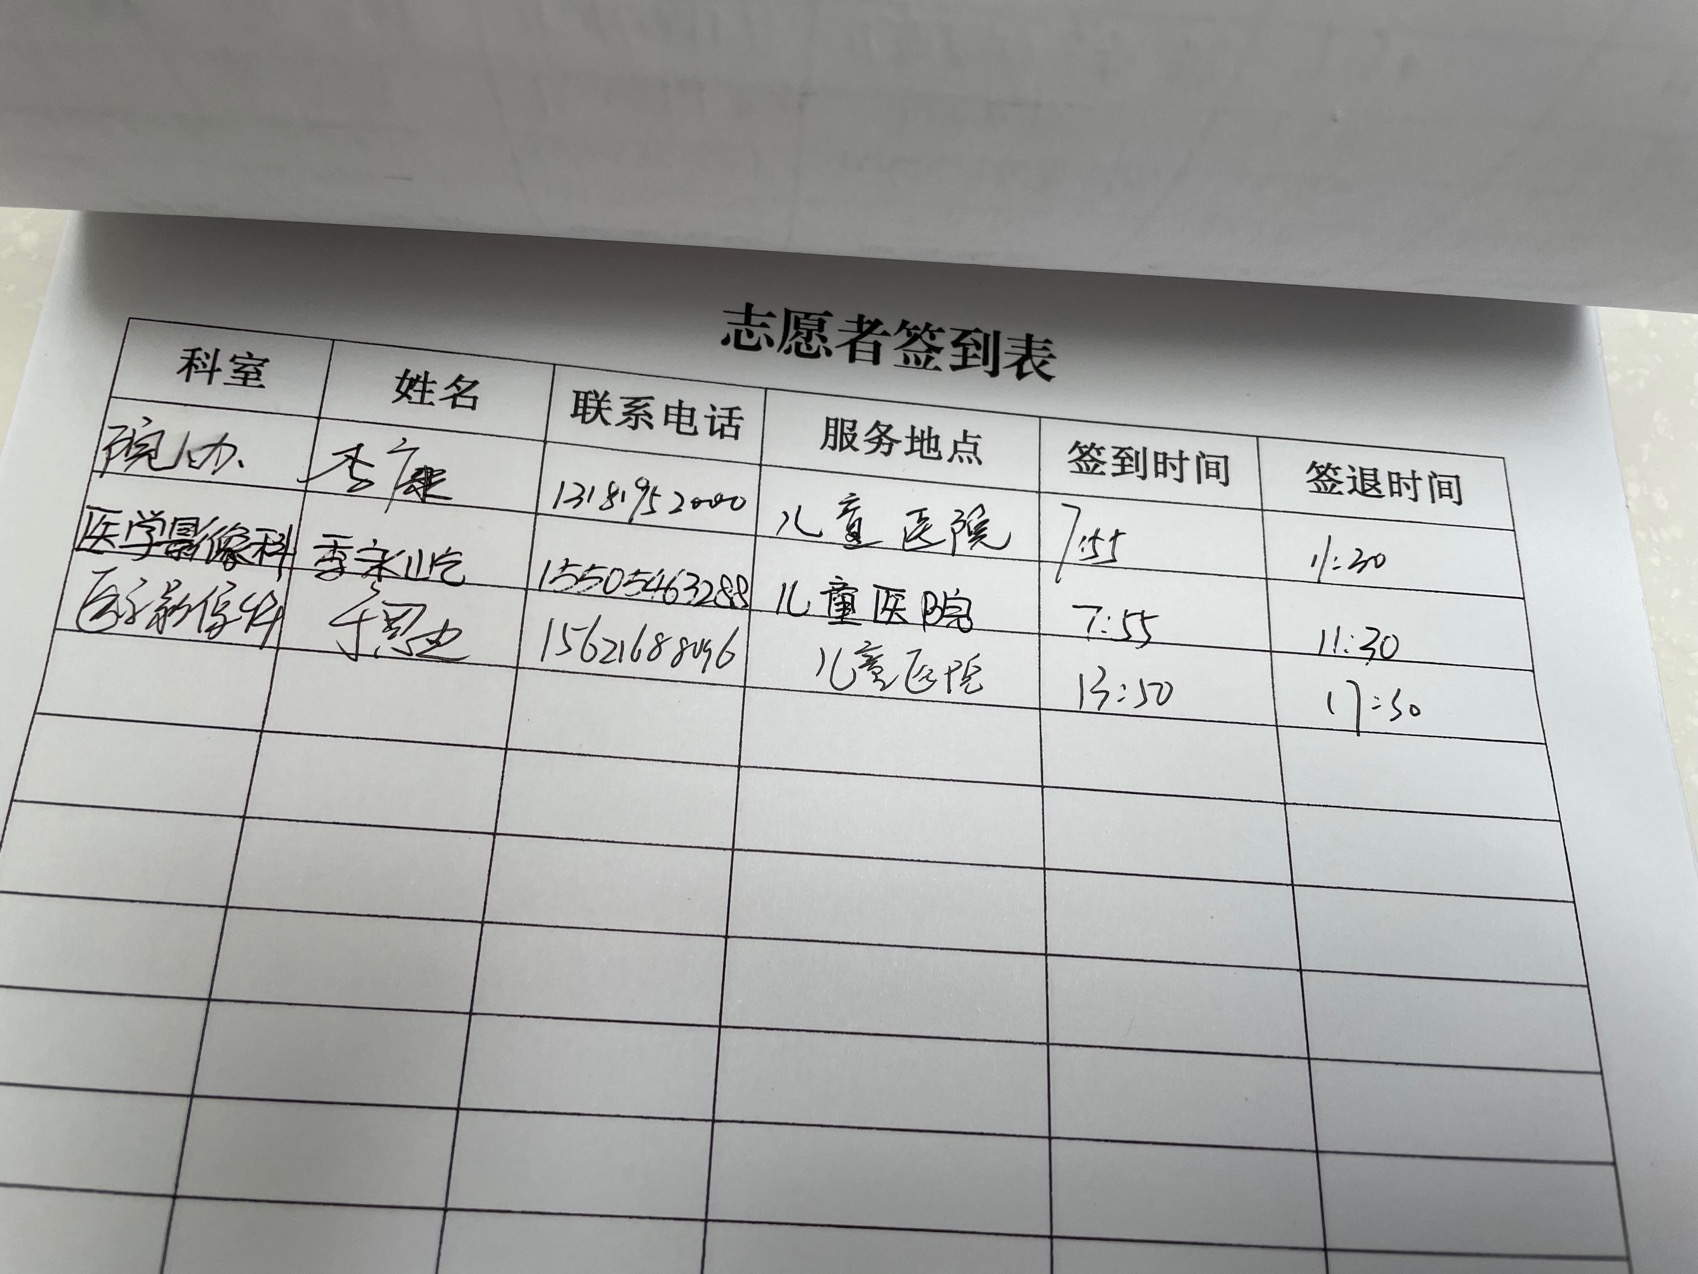 志愿者签到表
科室 姓名 联系电话 服务地点 签到时间 签退时间
院办 李康 13181952000 儿童医院 7:55 11:30
医学影像科 季永屹 15505463288 儿童医院 7:55 11:30
医学影像科 15621688096 儿童医院 13:50 17:30